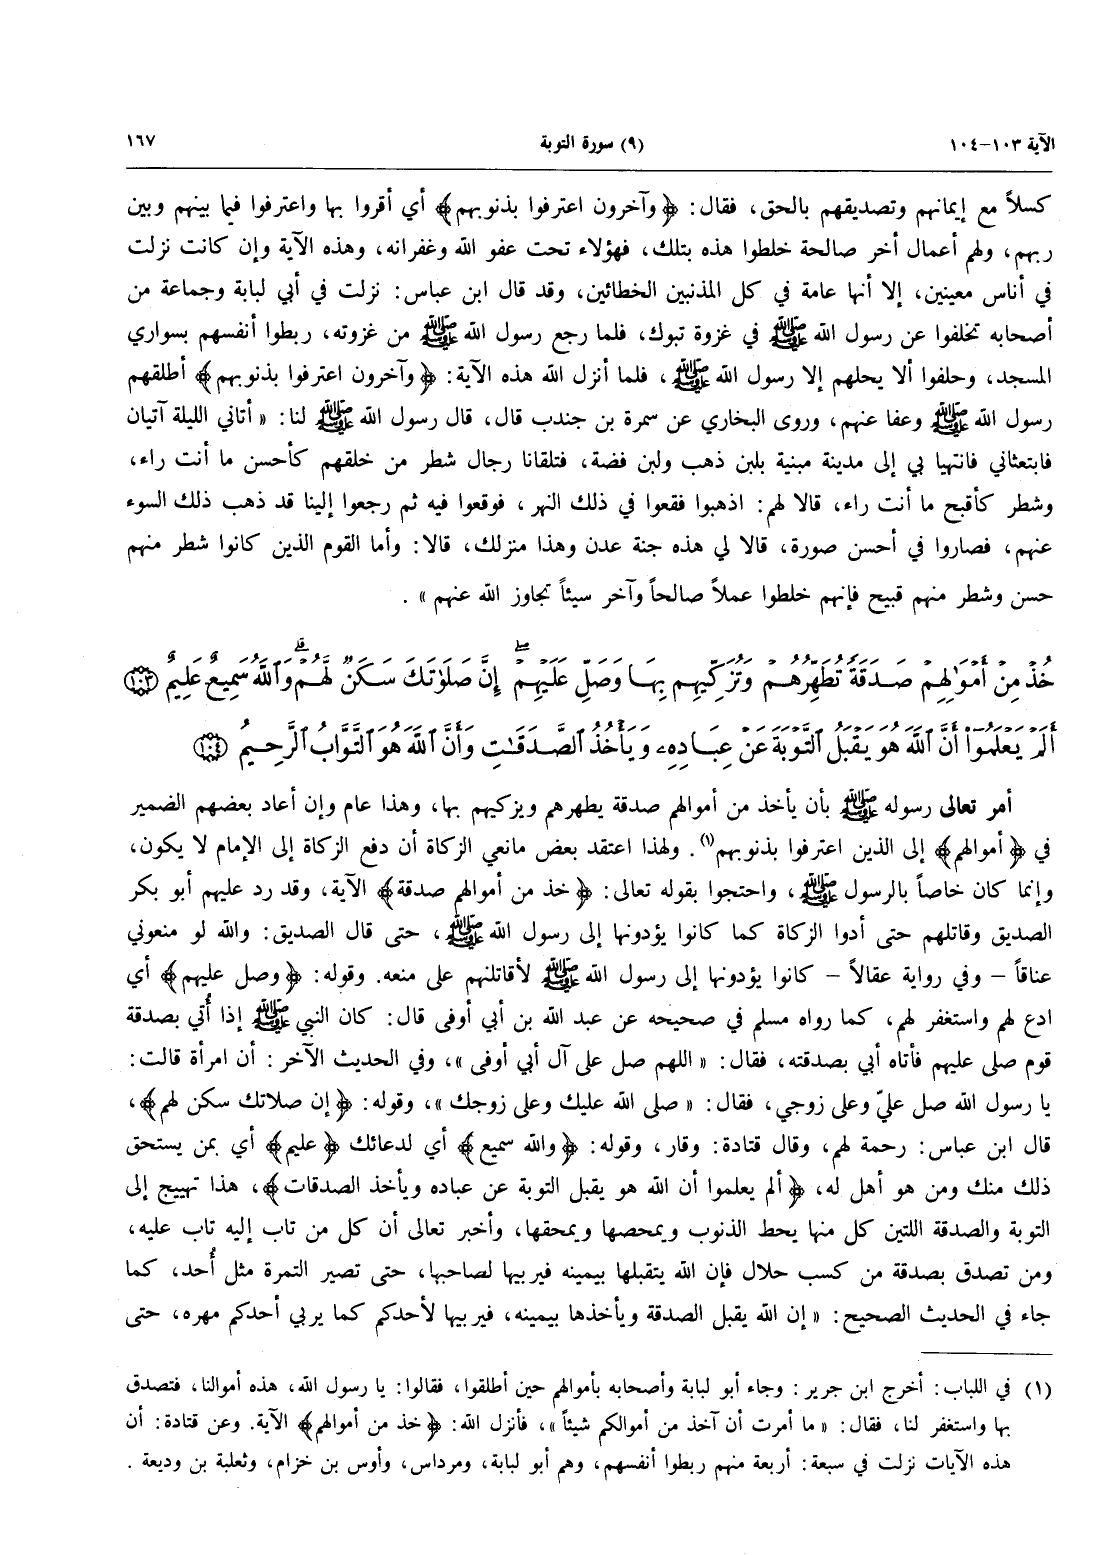 الآية ١٠٣-١٠٤ (٩) سورة التوبة ١٦٧
كسلاً مع إيمانهم وتصديقهم بالحق، فقال: ﴿وآخرون اعترفوا بذنوبهم﴾ أي أقروا بها واعترفوا فيما بينهم وبين
ربهم، ولهم أعمال أخر صالحة خلطوا هذه بتلك، فهؤلاء تحت عفو الله وغفرانه، وهذه الآية وإن كانت نزلت
في أناس معينين، إلا أنها عامة في كل المذنبين الخطائين، وقد قال ابن عباس: نزلت في أبي لبابة وجماعة من
أصحابه تخلفوا عن رسول الله ﷺ في غزوة تبوك، فلما رجع رسول الله ﷺ من غزوته، ربطوا أنفسهم بسواري
المسجد، وحلفوا ألا يحلهم إلا رسول الله ﷺ، فلما أنزل الله هذه الآية: ﴿وآخرون اعترفوا بذنوبهم﴾ أطلقهم
رسول الله ﷺ وعفا عنهم، وروى البخاري عن سمرة بن جندب قال، قال رسول الله ﷺ لنا: « أتاني الليلة آتيان
فابتعثاني فانتهيا بي إلى مدينة مبنية بلبن ذهب ولبن فضة، فتلقانا رجال شطر من خلقهم كأحسن ما أنت راء،
وشطر كأقبح ما أنت راء، قالا لهم: اذهبوا فقعوا في ذلك النهر، فوقعوا فيه ثم رجعوا إلينا قد ذهب ذلك السوء
عنهم، فصاروا في أحسن صورة، قالا لي هذه جنة عدن وهذا منزلك، قالا: وأما القوم الذين كانوا شطر منهم
حسن وشطر منهم قبيح فإنهم خلطوا عملاً صالحاً وآخر سيئاً تجاوز الله عنهم » .
خُذْ مِنْ أَمْوَٰلِهِمْ صَدَقَةً تُطَهِّرُهُمْ وَتُزَكِّيهِم بِهَا وَصَلِّ عَلَيْهِمْ ۖ إِنَّ صَلَوٰتَكَ سَكَنٌ لَّهُمْ ۗ وَٱللَّهُ سَمِيعٌ عَلِيمٌ ﴿١٠٣﴾
أَلَمْ يَعْلَمُوٓا۟ أَنَّ ٱللَّهَ هُوَ يَقْبَلُ ٱلتَّوْبَةَ عَنْ عِبَادِهِۦ وَيَأْخُذُ ٱلصَّدَقَٰتِ وَأَنَّ ٱللَّهَ هُوَ ٱلتَّوَّابُ ٱلرَّحِيمُ ﴿١٠٤﴾
أمر تعالى رسوله ﷺ بأن يأخذ من أموالهم صدقة يطهرهم ويزكيهم بها، وهذا عام وإن أعاد بعضهم الضمير
في ﴿أموالهم﴾ إلى الذين اعترفوا بذنوبهم(١). ولهذا اعتقد بعض مانعي الزكاة أن دفع الزكاة إلى الإمام لا يكون،
وإنما كان خاصاً بالرسول ﷺ، واحتجوا بقوله تعالى: ﴿خذ من أموالهم صدقة﴾ الآية، وقد رد عليهم أبو بكر
الصديق وقاتلهم حتى أدوا الزكاة كما كانوا يؤدونها إلى رسول الله ﷺ، حتى قال الصديق: والله لو منعوني
عناقاً - وفي رواية عقالاً - كانوا يؤدونها إلى رسول الله ﷺ لأقاتلنهم على منعه. وقوله: ﴿وصل عليهم﴾ أي
ادع لهم واستغفر لهم، كما رواه مسلم في صحيحه عن عبد الله بن أبي أوفى قال: كان النبي ﷺ إذا أُتي بصدقة
قوم صلى عليهم فأتاه أبي بصدقته، فقال: « اللهم صل على آل أبي أوفى »، وفي الحديث الآخر: أن امرأة قالت:
يا رسول الله صل عليّ وعلى زوجي، فقال: « صلى الله عليك وعلى زوجك »، وقوله: ﴿إن صلاتك سكن لهم﴾،
قال ابن عباس: رحمة لهم، وقال قتادة: وقار، وقوله: ﴿والله سميع﴾ أي لدعائك ﴿عليم﴾ أي بمن يستحق
ذلك منك ومن هو أهل له، ﴿ألم يعلموا أن الله هو يقبل التوبة عن عباده ويأخذ الصدقات﴾، هذا تهييج إلى
التوبة والصدقة اللتين كل منها يحط الذنوب ويمحصها ويمحقها، وأخبر تعالى أن كل من تاب إليه تاب عليه،
ومن تصدق بصدقة من كسب حلال فإن الله يتقبلها بيمينه فيربيها لصاحبها، حتى تصير التمرة مثل أُحد، كما
جاء في الحديث الصحيح: « إن الله يقبل الصدقة ويأخذها بيمينه، فيربيها لأحدكم كما يربي أحدكم مهره، حتى
(١) في اللباب: أخرج ابن جرير: وجاء أبو لبابة وأصحابه بأموالهم حين أطلقوا، فقالوا: يا رسول الله، هذه أموالنا، فتصدق
بها واستغفر لنا، فقال: « ما أمرت أن آخذ من أموالكم شيئاً »، فأنزل الله: ﴿خذ من أموالهم﴾ الآية. وعن قتادة: أن
هذه الآيات نزلت في سبعة: أربعة منهم ربطوا أنفسهم، وهم أبو لبابة، ومرداس، وأوس بن خزام، وثعلبة بن وديعة .